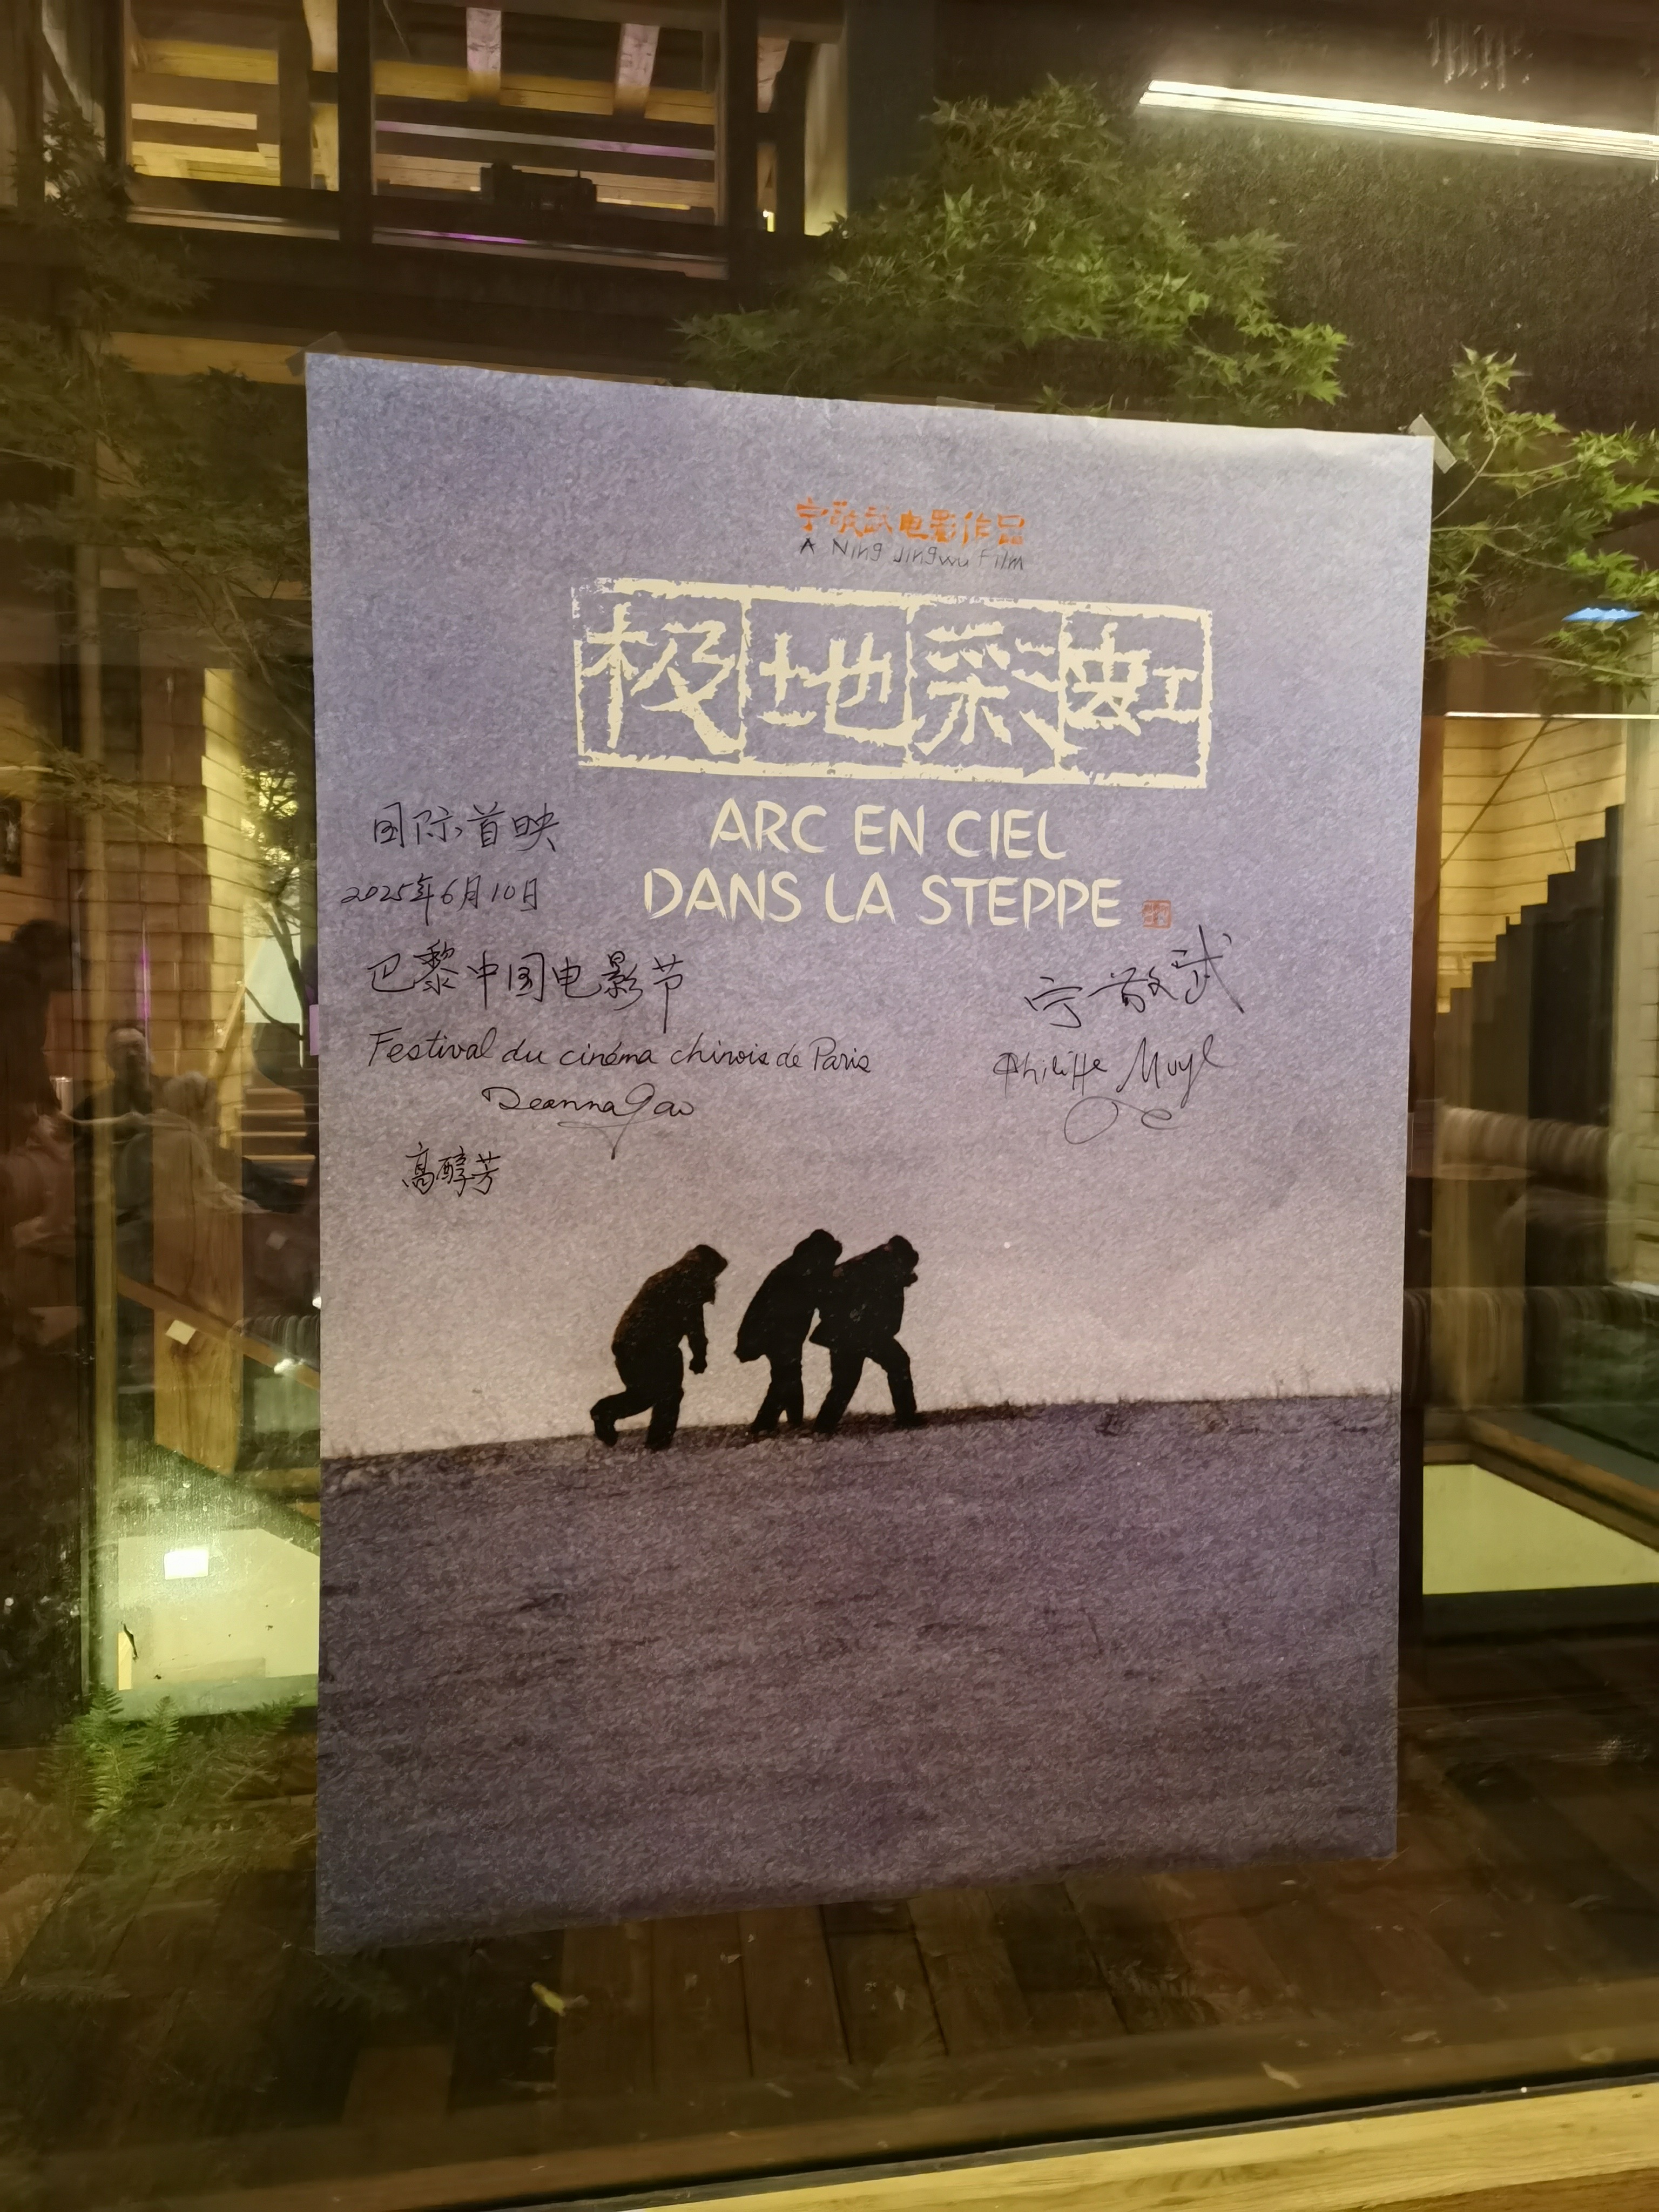 宁敬武电影作品
A Ning Jingwu Film
极地彩虹
ARC EN CIEL
DANS LA STEPPE
国际首映
2025年6月10日
巴黎中国电影节
Festival du cinéma chinois de Paris
Deanna Gao
高醇芳
宁敬武
Philippe Muyl